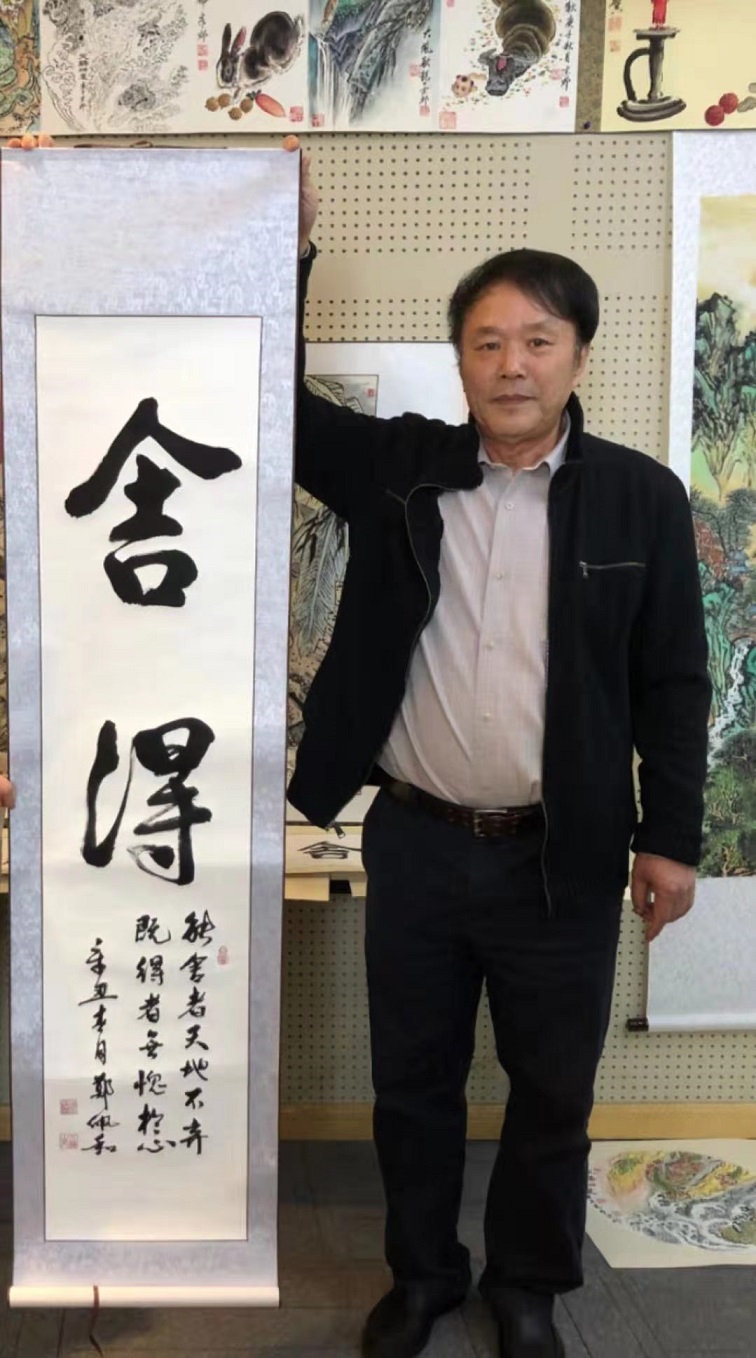 舍得
能舍者天地不弃
既得者無愧於心
辛丑春月鄭佩和
舍